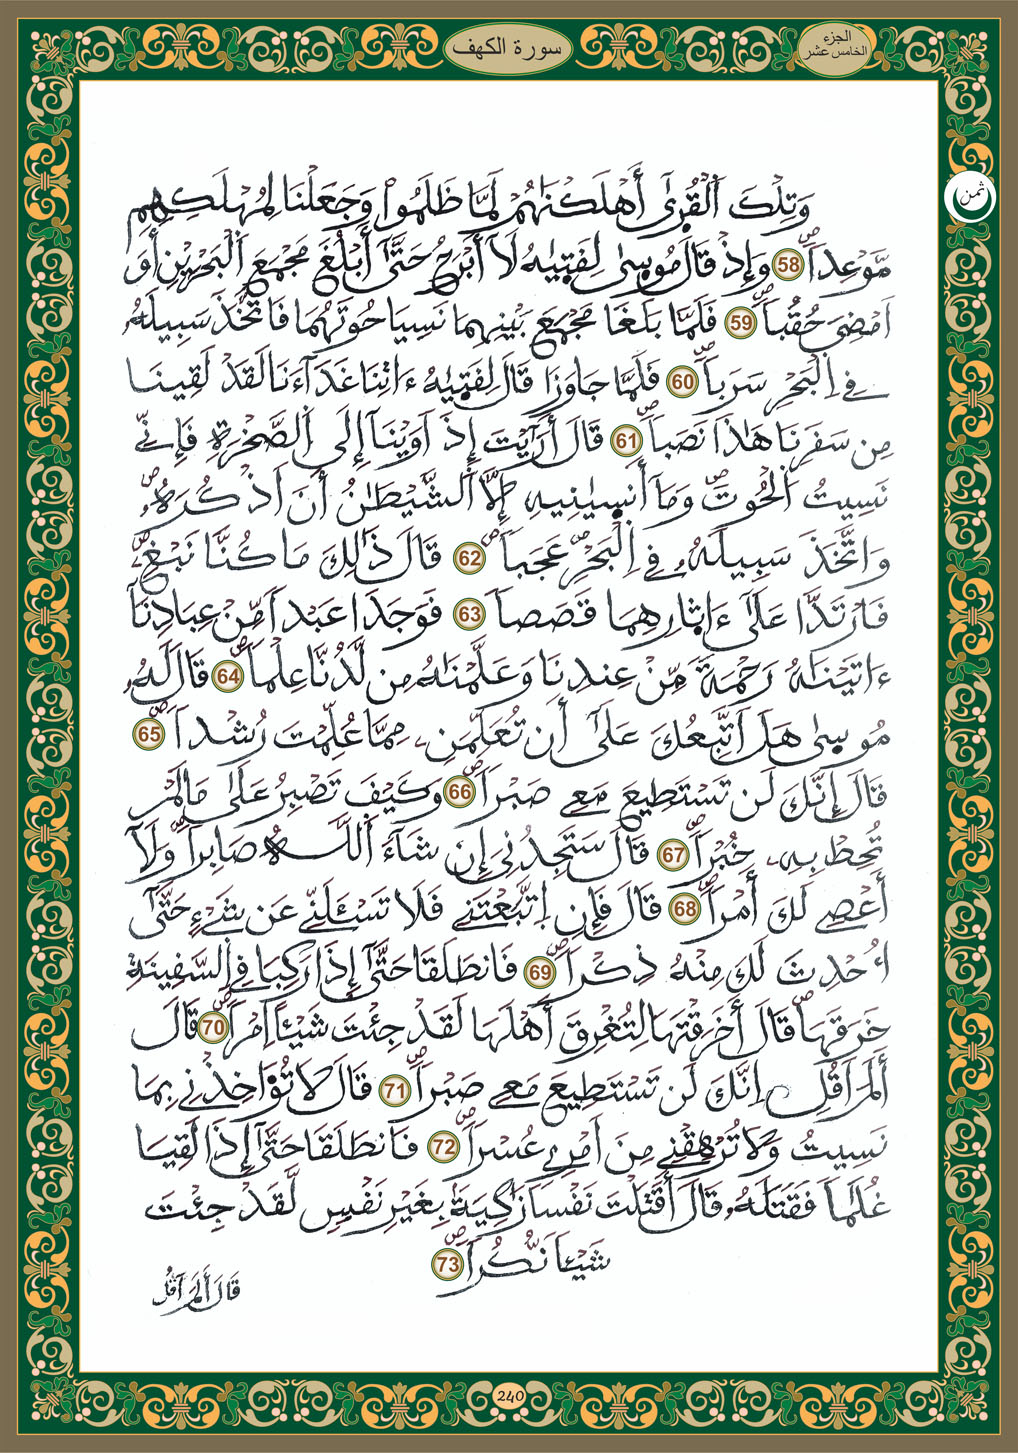 سورة الكهف
الجزء
الخامس عشر
ثمن
وَتِلْكَ اَ۬لْقُر۪يٰٓ أَهْلَكْنَٰهُمْ لَمَّا ظَلَمُواْ وَجَعَلْنَا لِمُهْلَكِهِم
مَّوْعِداٗۖ 58 وَإِذْ قَالَ مُوس۪يٰ لِفَت۪يٰهُ لَآ أَبْرَحُ حَتَّيٰٓ أَبْلُغَ مَجْمَعَ اَ۬لْبَحْرَيْنِ أَوَ
اَمْضِيَ حُقُباٗۖ 59 فَلَمَّا بَلَغَا مَجْمَعَ بَيْنِهِمَا نَسِيَا حُوتَهُمَا فَاتَّخَذَ سَبِيلَهُۥ
فِے اِ۬لْبَحْرِ سَرَباٗۖ 60 فَلَمَّا جَاوَزَا قَالَ لِفَت۪يٰهُ ءَاتِنَا غَدَآءَنَا لَقَدْ لَقِينَا
مِن سَفَرِنَا هَٰذَا نَصَباٗۖ 61 قَالَ أَرَٰٓيْتَ إِذَ اَوَيْنَآ إِلَي اَ۬لصَّخْرَةِ فَإِنِّے
نَسِيتُ اُ۬لْحُوتَۖ وَمَآ أَنس۪يٰنِيهِ إِلَّا اَ۬لشَّيْطَٰنُ أَنَ اَذْكُرَهُۥۖ
وَاتَّخَذَ سَبِيلَهُۥ فِے اِ۬لْبَحْرِۖ عَجَباٗۖ 62 قَالَ ذَٰلِكَ مَا كُنَّا نَبْغِۦۖ
فَارْتَدَّا عَلَيٰٓ ءَاث۪ارِهِمَا قَصَصاٗ 63 فَوَجَدَا عَبْداٗ مِّنْ عِبَادِنَآ
ءَاتَيْنَٰهُ رَحْمَةٗ مِّنْ عِندِنَا وَعَلَّمْنَٰهُ مِن لَّدُنَّا عِلْماٗۖ 64 قَالَ لَهُۥ
مُوس۪يٰ هَلَ اَتَّبِعُكَ عَلَيٰٓ أَن تُعَلِّمَنِۦ مِمَّا عُلِّمْتَ رُشْداٗۖ 65
قَالَ إِنَّكَ لَن تَسْتَطِيعَ مَعِے صَبْراٗۖ 66 وَكَيْفَ تَصْبِرُ عَلَيٰ مَا لَمْ
تُحِطْ بِهِۦ خُبْراٗۖ 67 قَالَ سَتَجِدُنِيَ إِن شَآءَ اَ۬للَّهُ صَابِراٗۖ وَلَآ
أَعْصِے لَكَ أَمْراٗۖ 68 قَالَ فَإِنِ اِ۪تَّبَعْتَنِے فَلَا تَسْـَٔلَنِّے عَن شَےْءٍ حَتَّيٰٓ
أُحْدِثَ لَكَ مِنْهُ ذِكْراٗۖ 69 فَانطَلَقَا حَتَّيٰٓ إِذَا رَكِبَا فِے اِ۬لسَّفِينَةِ
خَرَقَهَاۖ قَالَ أَخَرَقْتَهَا لِتُغْرِقَ أَهْلَهَا لَقَدْ جِئْتَ شَيْـٔاً اِمْراٗۖ 70 قَالَ
أَلَمَ اَقُلِ اِنَّكَ لَن تَسْتَطِيعَ مَعِے صَبْراٗۖ 71 قَالَ لَا تُوَ۬اخِذْنِے بِمَا
نَسِيتُ وَلَا تُرْهِقْنِے مِنَ اَمْرِے عُسْراٗۖ 72 فَانطَلَقَا حَتَّيٰٓ إِذَا لَقِيَا
غُلَٰماٗ فَقَتَلَهُۥ قَالَ أَقَتَلْتَ نَفْساٗ زَٰكِيَةَۢ بِغَيْرِ نَفْسٖ لَّقَدْ جِئْتَ
شَيْـٔاٗ نُّكُراٗۖ 73
قَالَ أَلَمَ اَقُل
240